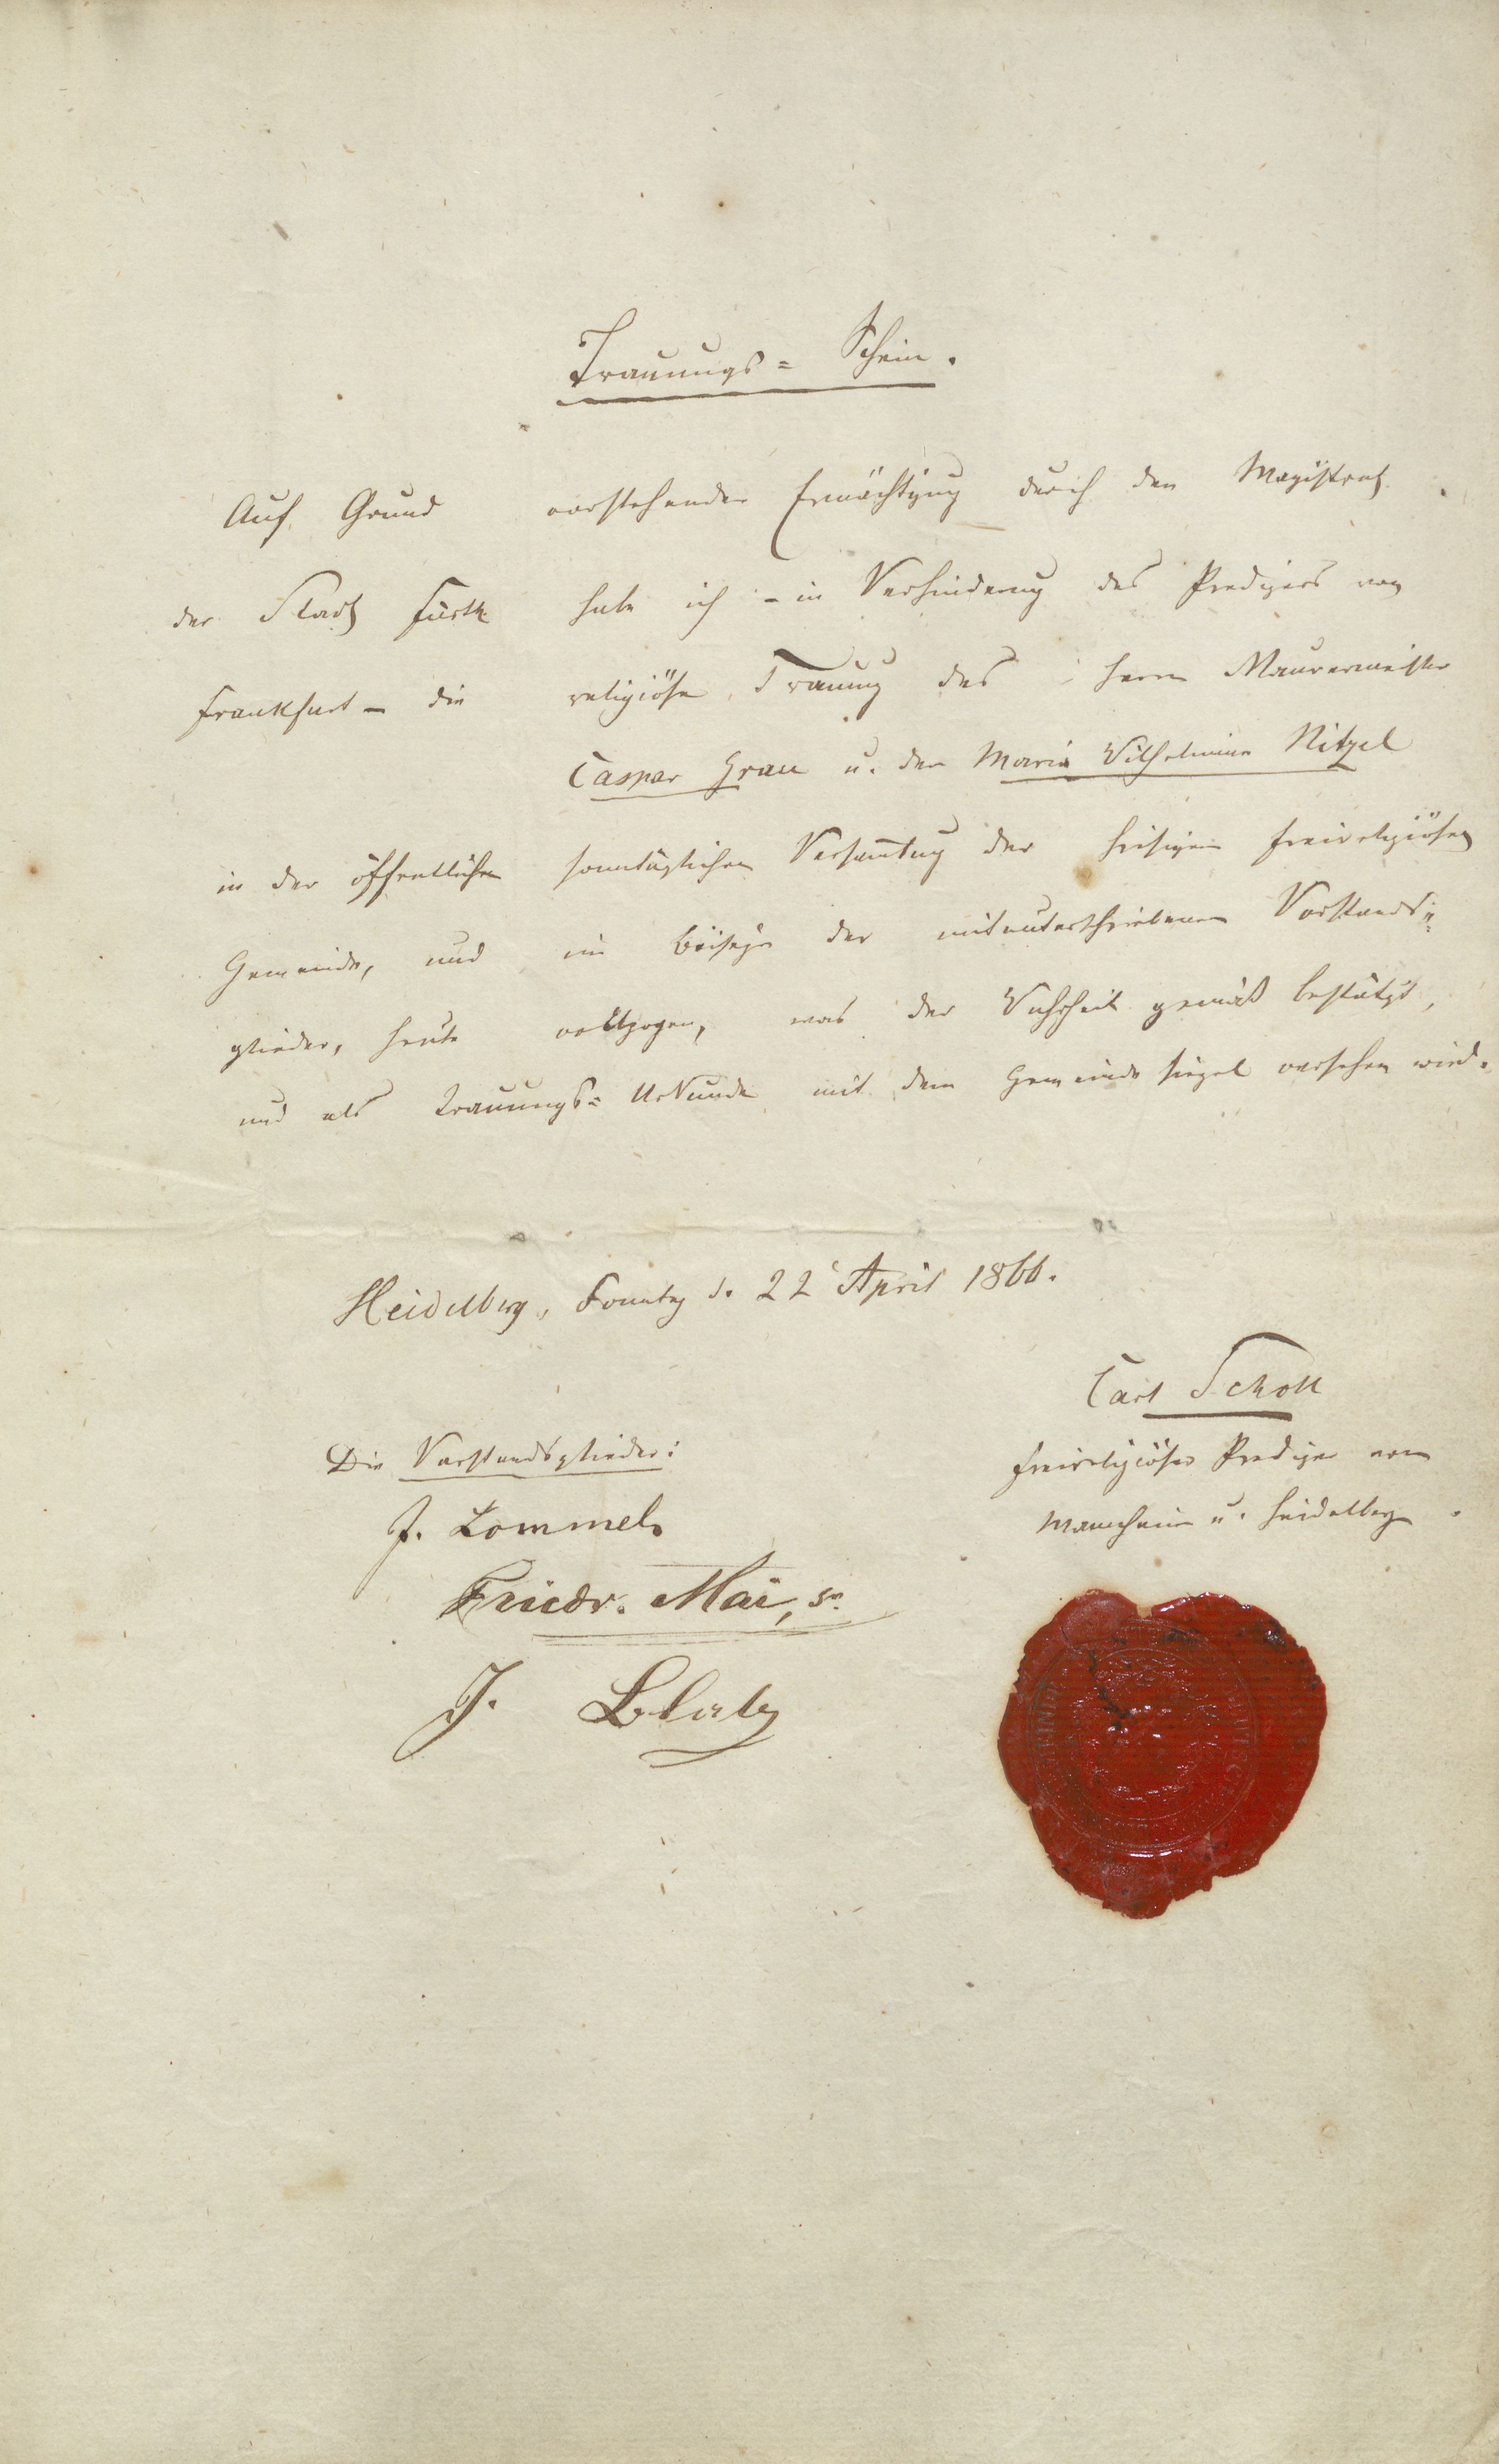 Trauungs= Schein.
Auf Grund vorstehender Ermächtigung durch den Magistrat
der Stadt Fürth habe ich - in Verhinderung des Predigers von
Frankfurt - die religiöse Trauung des Herrn Maurermeister
Caspar Grau u. der Maria Wilhelmine Nitzel
in der öffentlichen sonntäglichen Versam̄lung der hiesigen freireligiösen
Gemeinde, und im Beisein der mitunterschriebenen Vorstands=
glieder, heute vollzogen, was der Wahrheit gemäß bestätigt,
und als Trauungs= Urkunde mit dem Gemeindesiegel versehen wird.
Heidelberg, Sonntag d. 22 April 1866.
Carl Scholl
freireligiöser Prediger von
Mannheim u. Heidelberg.
Die Vorstandsglieder:
J. Lommel
Friedr. Mai, sr.
J.